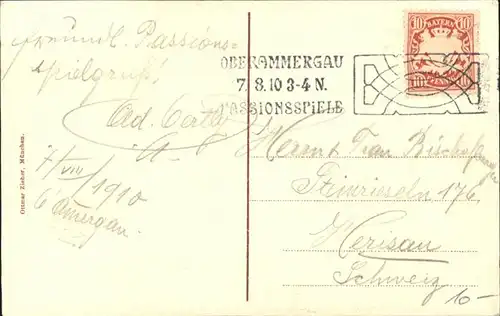 freundl. Passions-
spielgruß!
Ad.
7/VIII 1910
O'Amergau.
Ottmar Zieher, München.
OBERAMMERGAU
7. 8. 10 3-4 N.
PASSIONSSPIELE
10 BAYERN 10
10 PFENNIG 10
Herrn & Frau
Steinrieseln 176
Herisau
Schweiz
10-